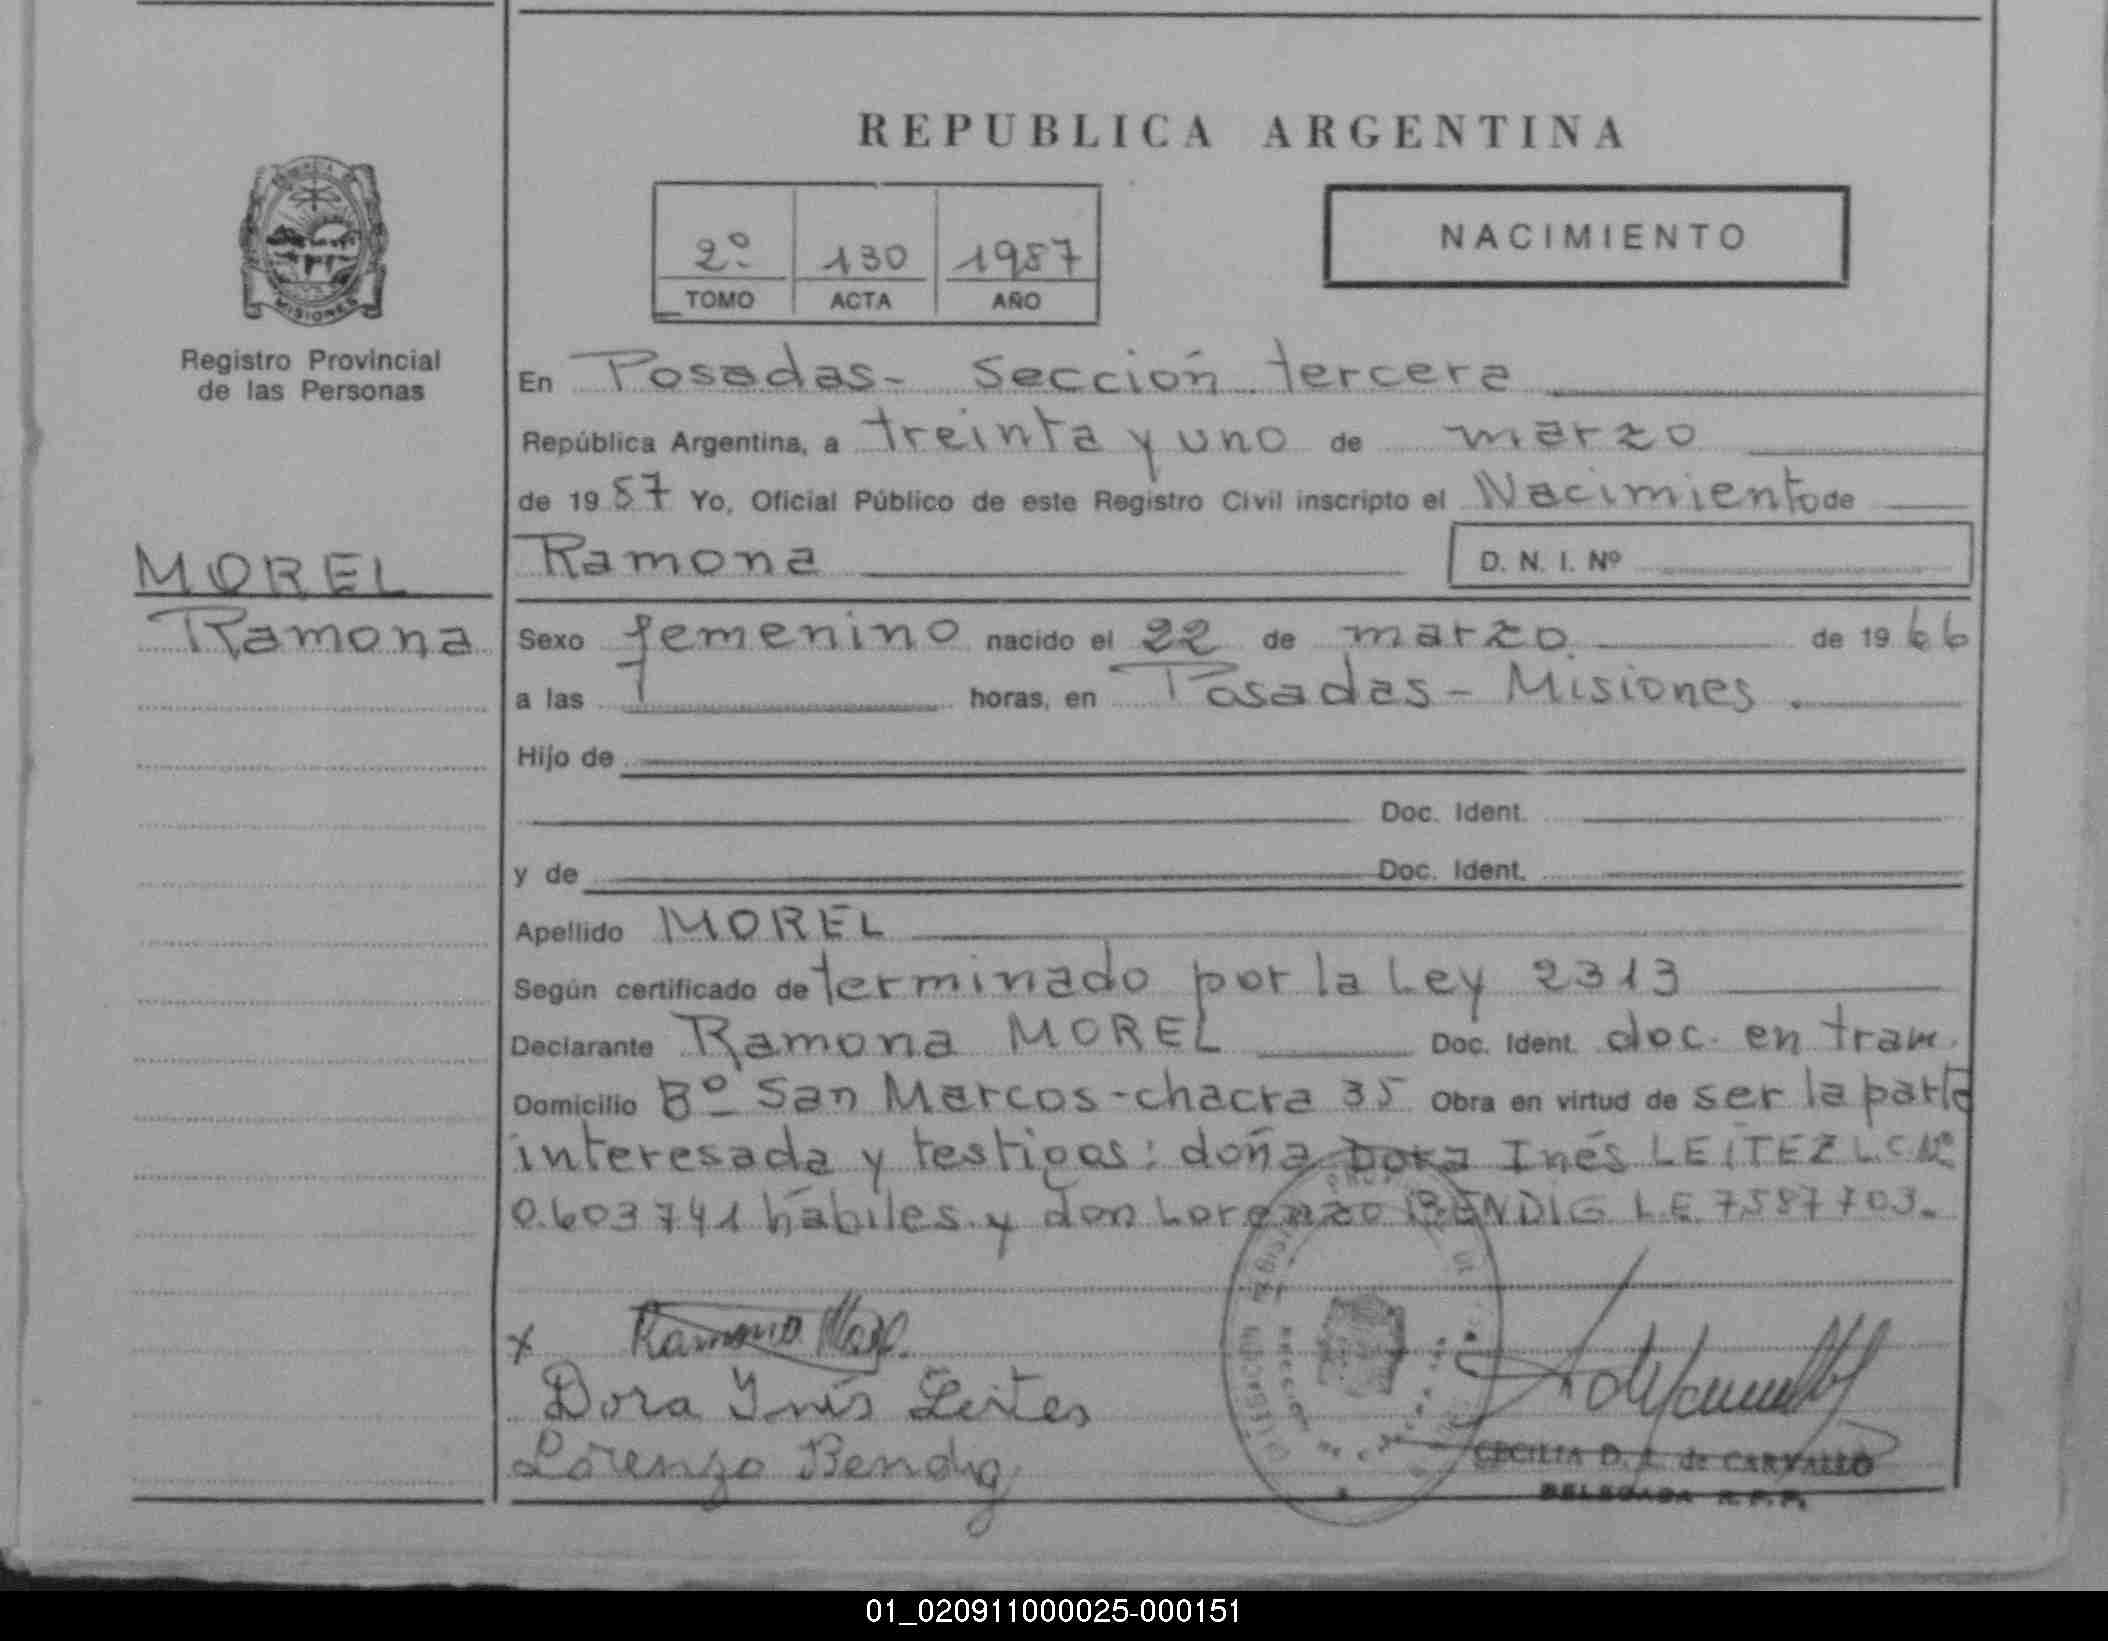 REPUBLICA ARGENTINA
2º 130 1987
TOMO ACTA AÑO
NACIMIENTO
MISIONES
Registro Provincial
de las Personas
En Posadas- sección tercera
República Argentina, a treinta y uno de marzo
de 1987 Yo, Oficial Público de este Registro Civil inscripto el Nacimiento de
MOREL
Ramona
Ramona D. N. I. Nº
Sexo femenino nacido el 22 de marzo de 1966
a las horas, en Posadas - Misiones.
Hijo de
Doc. Ident.
y de Doc. Ident.
Apellido MOREL
Según certificado determinado por la Ley 2313
Declarante Ramona MOREL Doc. Ident. doc. en tram.
Domicilio Bº San Marcos-chacra 35 Obra en virtud de ser la parte
interesada y testigos: doña Dora Inés LEITEZ L.C Nº
0.603741 hábiles y don Lorenzo BENDIG L.E 7587703.
x Ramona Morel.
Dora Inés Leites
Lorenzo Bendig
CECILIA D. de CARVALLO
DELEGADA R.P.P.
01_020911000025-000151